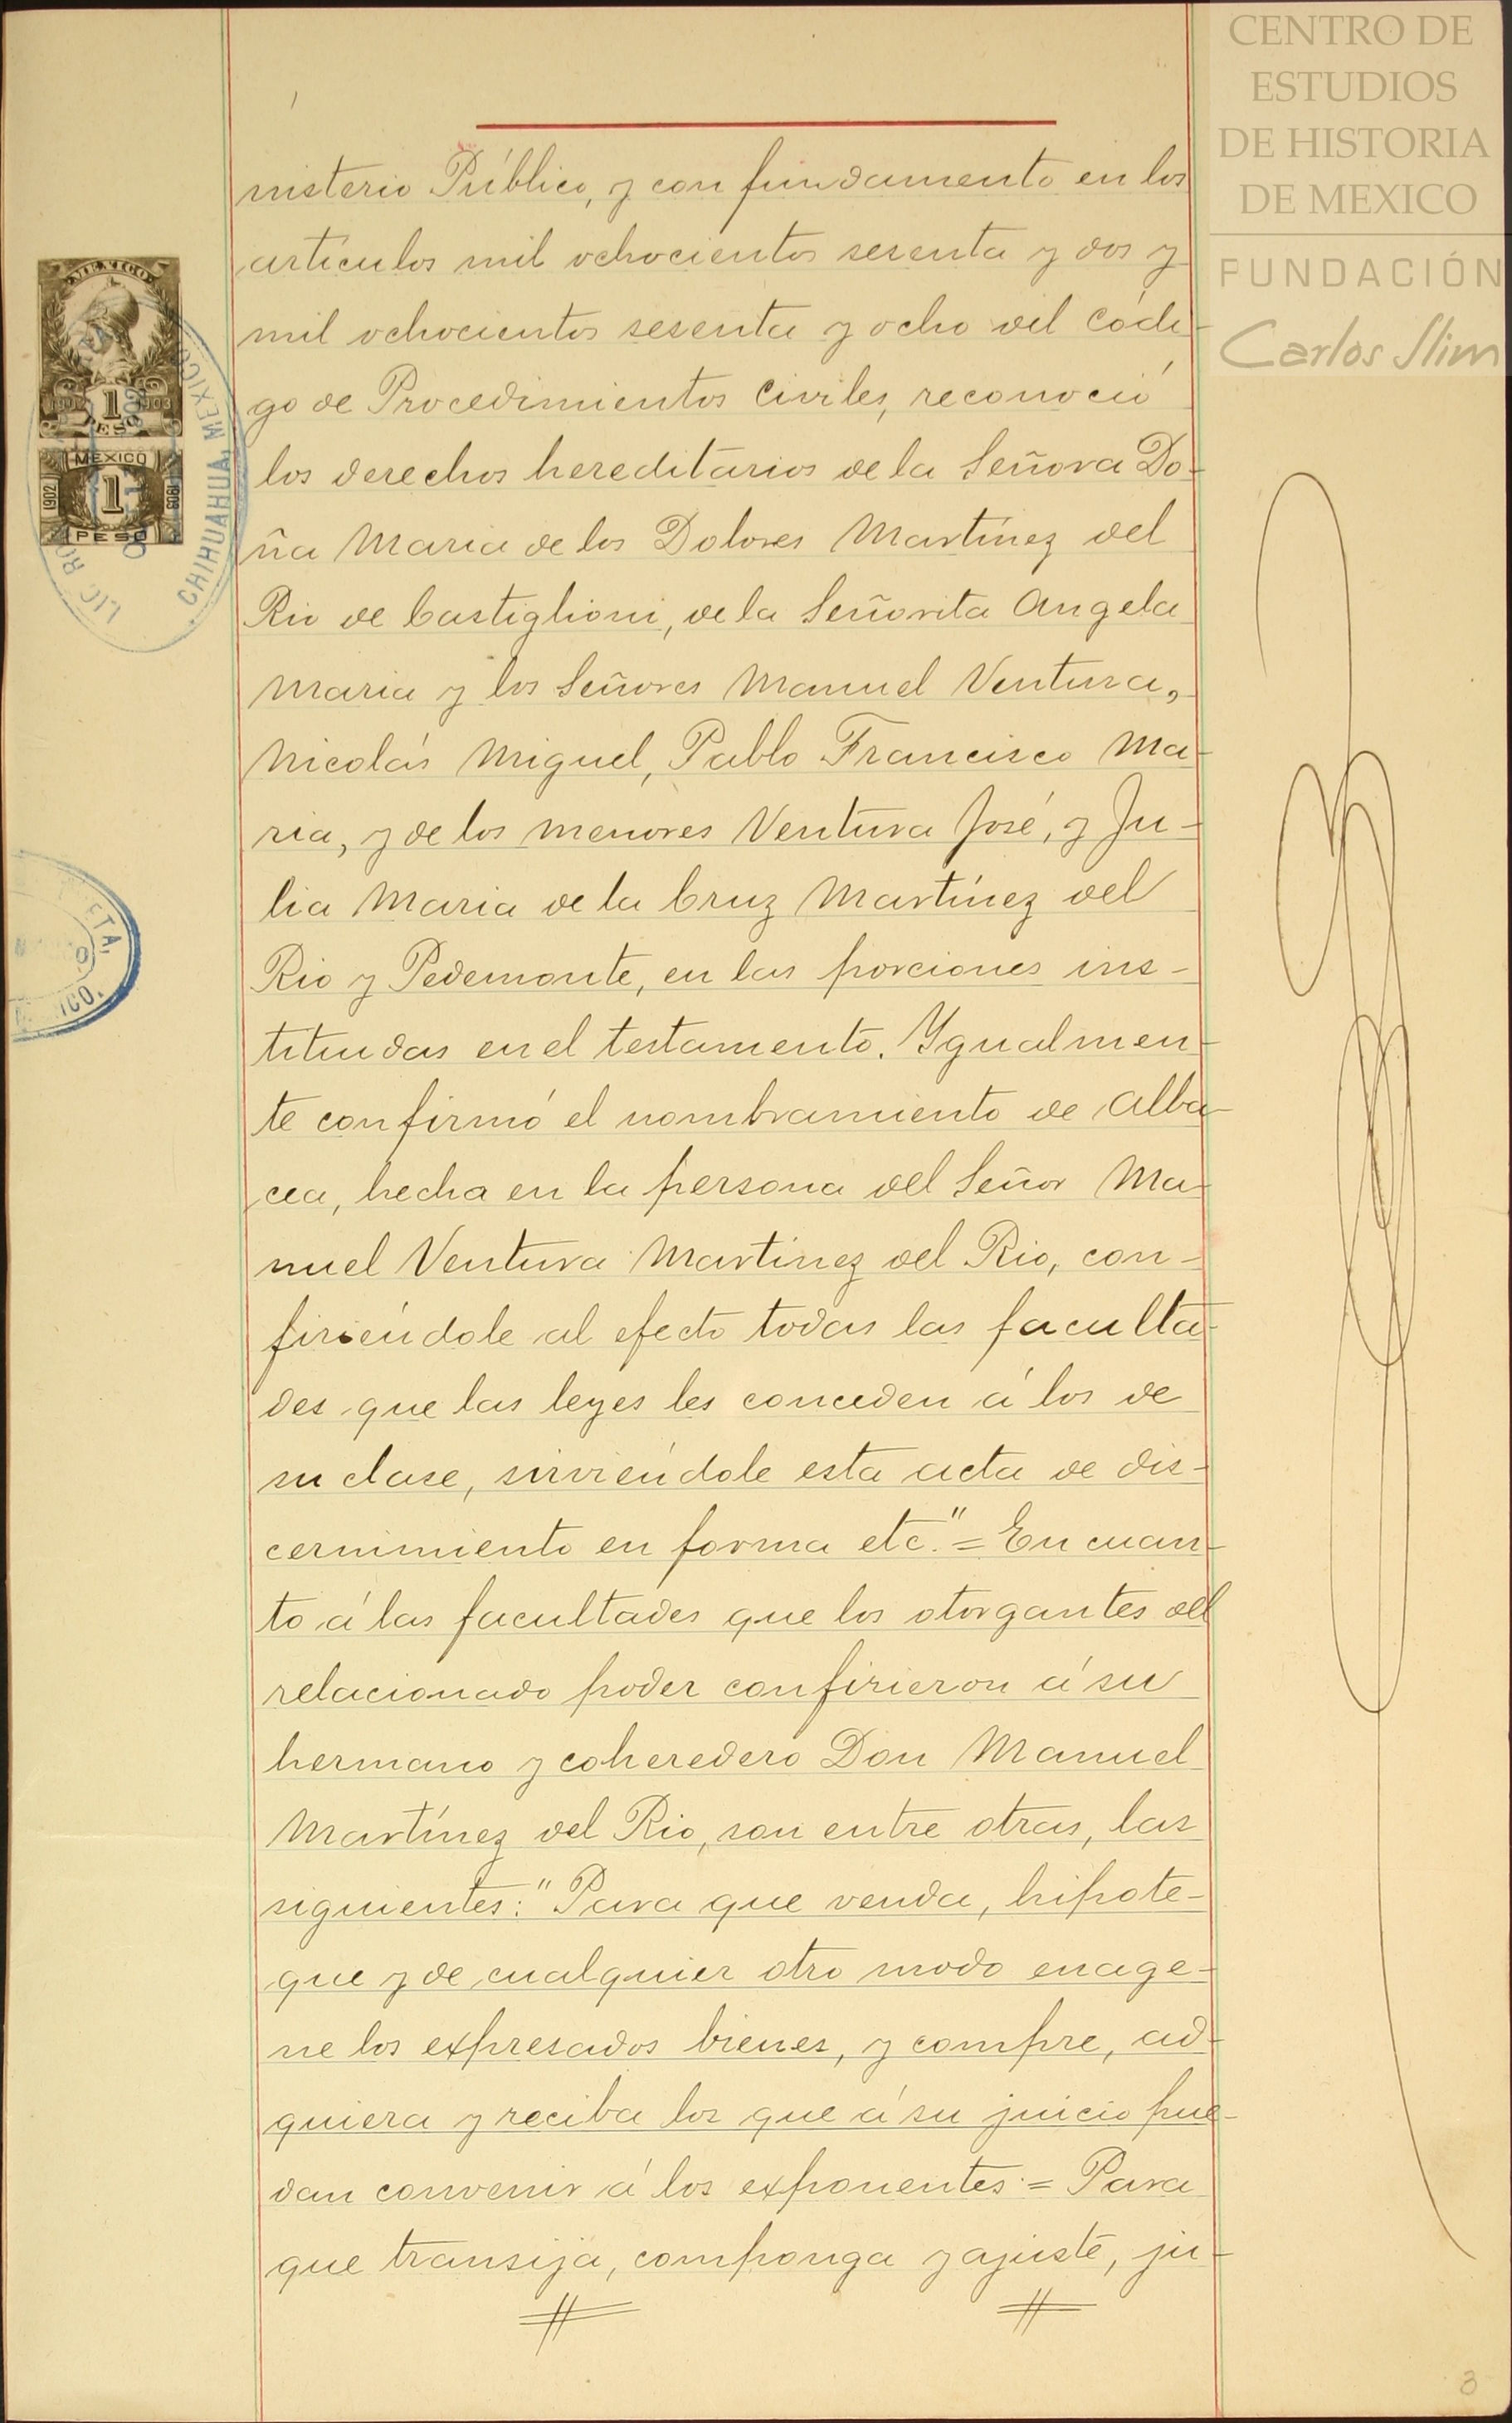 CENTRO DE
ESTUDIOS
DE HISTORIA
DE MEXICO
FUNDACIÓN
Carlos Slim
nisterio Público, y con fundamento en los
artículos mil ochocientos sesenta y dos y
mil ochocientos sesenta y ocho del Códi-
go de Procedimientos Civiles, reconoció
los derechos hereditarios de la Señora Do-
ña Maria de los Dolores Martínez del
Rio de Castiglioni, de la Señorita Angela
Maria y los Señores Manuel Ventura,
Nicolás Miguel, Pablo Francisco Ma-
ria, y de los menores Ventura José, y Ju-
lia Maria de la Cruz Martínez del
Rio y Pedemonte, en las porciones ins-
tituidas en el testamento. Ygualmen-
te confirmó el nombramiento de Alba-
cea, hecha en la persona del Señor Ma-
nuel Ventura Martínez del Rio, con-
firiéndole al efecto todas las faculta-
des que las leyes les conceden á los de
su clase, sirviéndole esta acta de dis-
cernimiento en forma etc." = En cuan-
to á las facultades que los otorgantes del
relacionado poder confirieron á su
hermano y coheredero Don Manuel
Martínez del Rio, son entre otras, las
siguientes: "Para que venda, hipote-
que y de cualquier otro modo enage-
ne los expresados bienes, y compre, ad-
quiera y reciba los que á su juicio pue-
dan convenir á los exponentes = Para
que transija, componga y ajuste, ju-
MEXICO
1902 1 1903
PESO
MEXICO
1902 1 1903
PESO
LIC
CHIHUAHUA, MEXICO
ETA,
ICO.
3